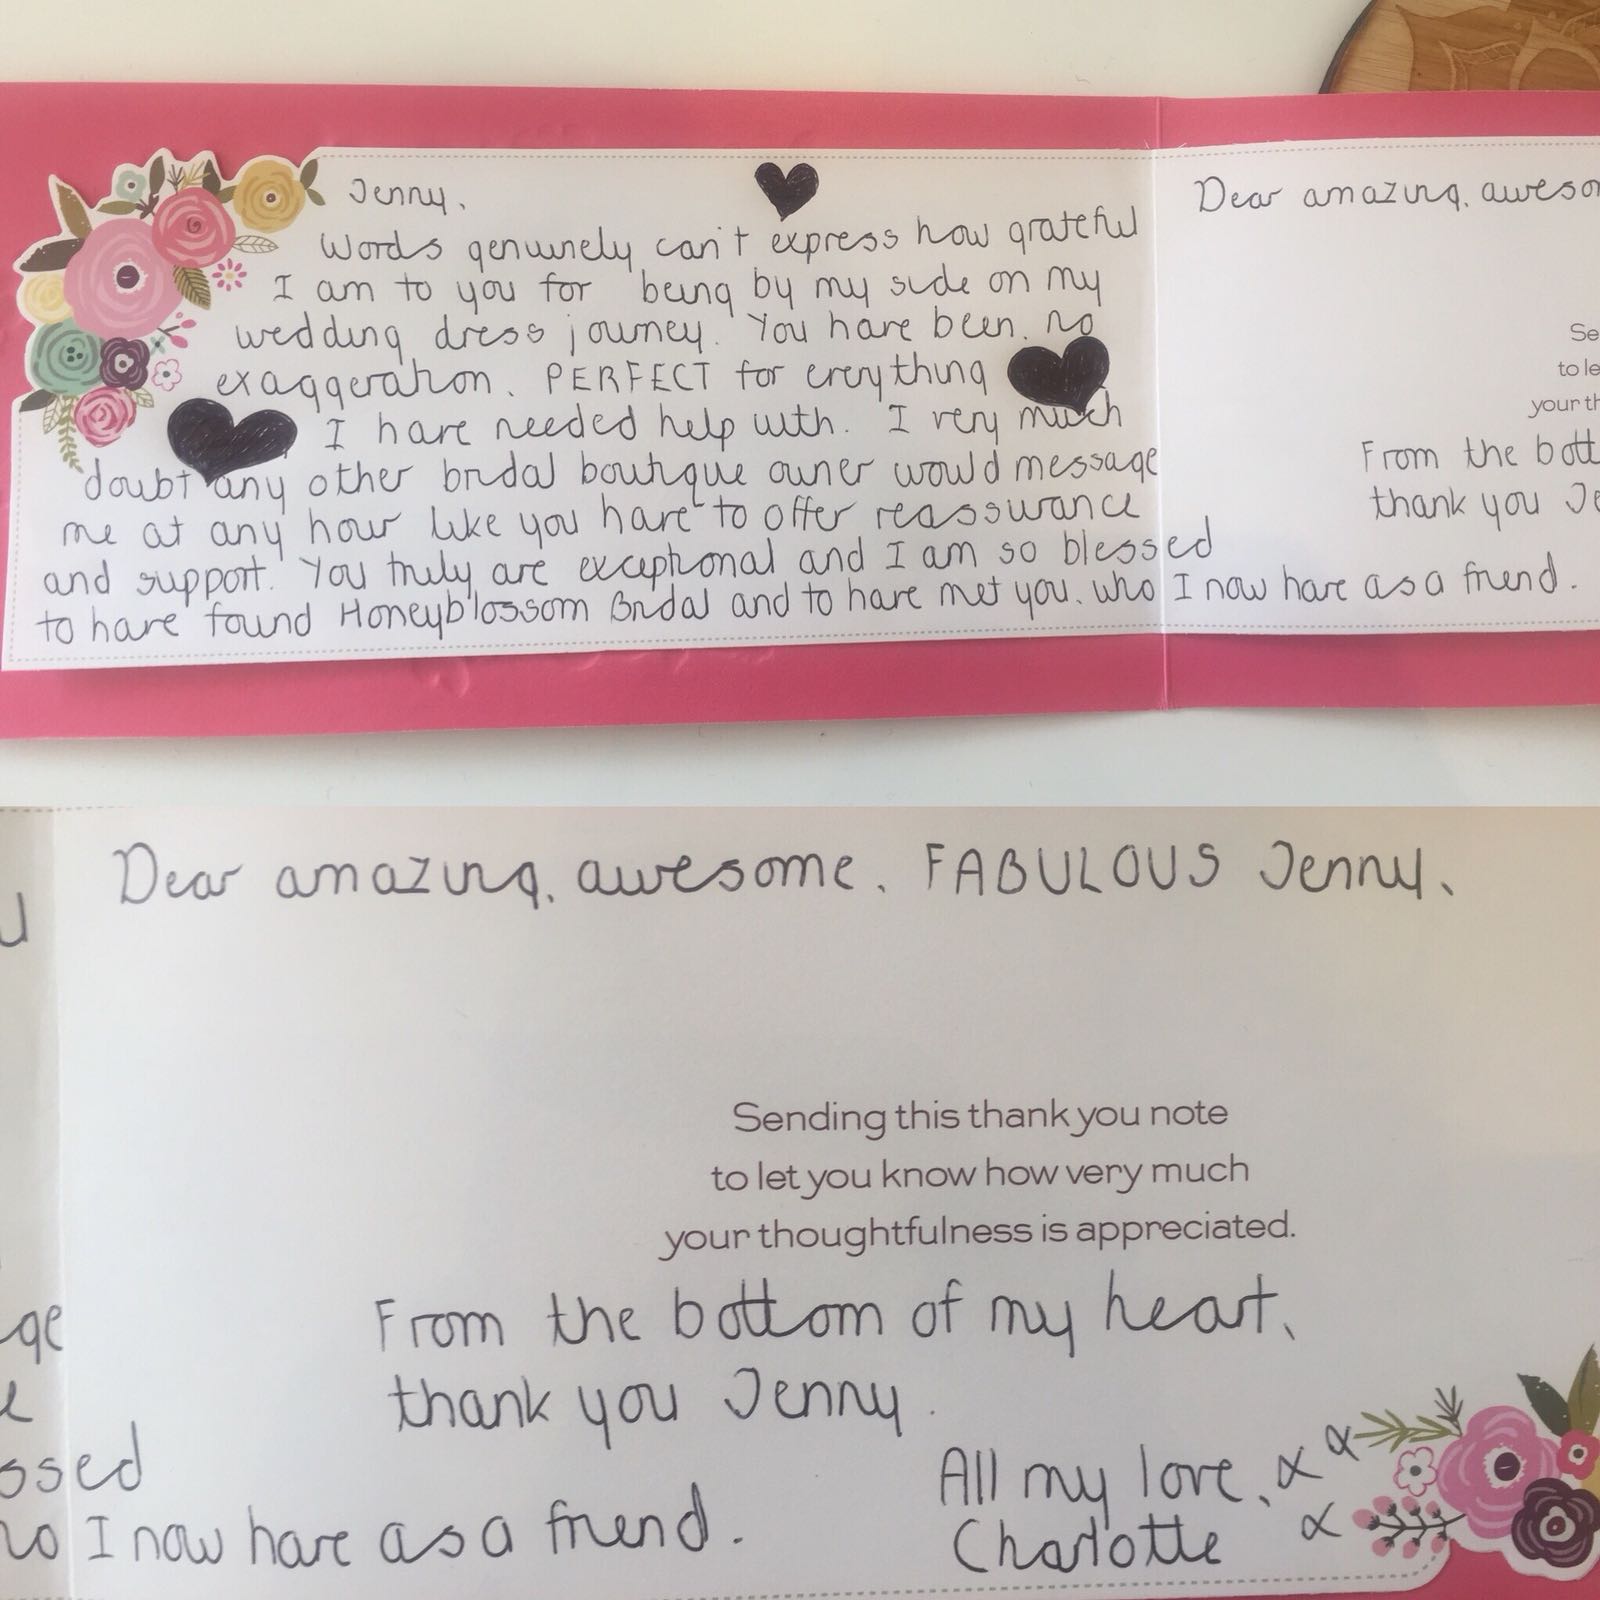 Jenny,
Words genuinely can't express how grateful
I am to you for being by my side on my
wedding dress journey. You have been, no
exaggeration, PERFECT for everything
I have needed help with. I very much
doubt any other bridal boutique owner would message
me at any hour like you have to offer reassurance
and support. You truly are exceptional and I am so blessed
to have found Honeyblossom Bridal and to have met you, who I now have as a friend.
Dear amazing, aweso
Se
to le
your th
From the bott
thank you Je
Dear amazing, awesome, FABULOUS Jenny,
Sending this thank you note
to let you know how very much
your thoughtfulness is appreciated.
From the bottom of my heart,
thank you Jenny.
ssed
who I now have as a friend.
All my love, x x
Charlotte x